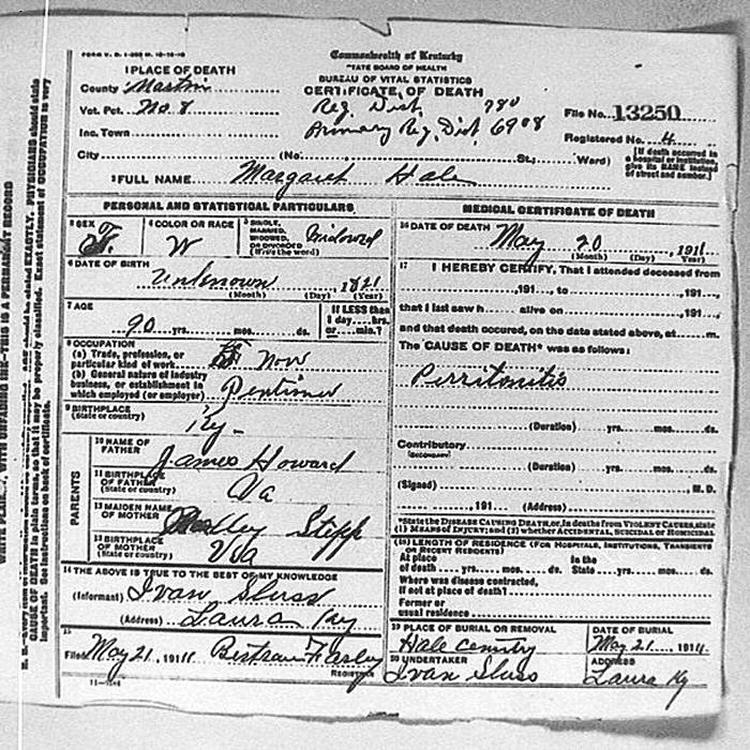 Commonwealth of Kentucky
STATE BOARD OF HEALTH
BUREAU OF VITAL STATISTICS
CERTIFICATE OF DEATH
1 PLACE OF DEATH
County Martin
Vot. Pct. No. 8
Inc. Town
City (No. St.; Ward)
Reg. Dist 780
Primary Reg. Dist. 6908
File No. 13250
Registered No. 4
[If death occurred in a hospital or institution, give its NAME instead of street and number.]
2 FULL NAME Margaret Hale
PERSONAL AND STATISTICAL PARTICULARS
3 SEX F.
4 COLOR OR RACE W
5 SINGLE, MARRIED, WIDOWED, OR DIVORCED (Write the word) Widowed
6 DATE OF BIRTH
Unknown, 1821
(Month) (Day) (Year)
7 AGE
90 yrs. mos. ds.
If LESS than 1 day hrs. or min.?
8 OCCUPATION
(a) Trade, profession, or particular kind of work
(b) General nature of industry business, or establishment in which employed (or employer)
9 BIRTHPLACE
(State or country) Ky.
PARENTS
10 NAME OF FATHER James Howard
11 BIRTHPLACE OF FATHER (State or country) Va
12 MAIDEN NAME OF MOTHER Stepp
13 BIRTHPLACE OF MOTHER (State or country)
14 THE ABOVE IS TRUE TO THE BEST OF MY KNOWLEDGE
(Informant) Ivan Sluss
(Address) Laura Ky
15
Filed May 21, 1911 Bertram
REGISTRAR
11-1544
MEDICAL CERTIFICATE OF DEATH
16 DATE OF DEATH May 20, 1911
(Month) (Day) (Year)
17 I HEREBY CERTIFY, That I attended deceased from
, 191 , to , 191 ,
that I last saw h alive on , 191 ,
and that death occured, on the date stated above, at m.
The CAUSE OF DEATH* was as follows:
Perritonitis
(Duration) yrs. mos. ds.
Contributory
(SECONDARY)
(Duration) yrs. mos. ds.
(Signed) , M. D.
, 191 (Address)
*State the DISEASE CAUSING DEATH, or, in deaths from VIOLENT CAUSES, state
(1) MEANS OF INJURY; and (2) whether ACCIDENTAL, SUICIDAL or HOMICIDAL
(18) LENGTH OF RESIDENCE (FOR HOSPITALS, INSTITUTIONS, TRANSIENTS OR RECENT RESIDENTS)
At place of death yrs. mos. ds. In the State yrs. mos. ds.
Where was disease contracted,
if not at place of death?
Former or
usual residence
19 PLACE OF BURIAL OR REMOVAL
Hale
DATE OF BURIAL
May 21, 1911
20 UNDERTAKER
Ivan Sluss
ADDRESS
Laura Ky